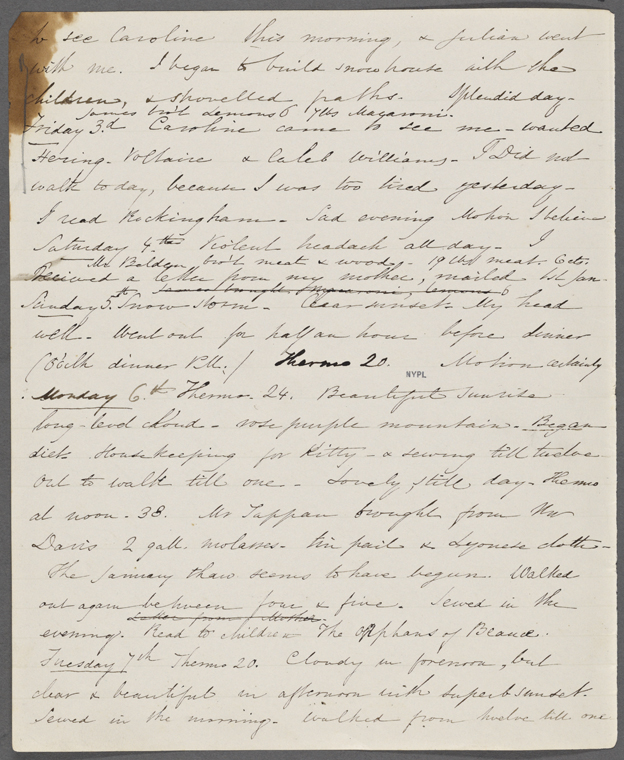 to see Caroline this morning, & Julian went
with me. I began to build snowhouse with the
children, & shovelled paths. Splendid day -
James bro't lemons 6 7 lbs Macaroni.
Friday 3.d Caroline came to see me - wanted
Hering. Voltaire & Caleb Williams - I Did not
walk today, because I was too tired yesterday -
I read Rockingham - Sad evening Motion I believe
Saturday 4.th Violent headach all day - I
Mr. Belden bro't meat & wood - 19 lbs meat. 6 cts.
Received a letter from my mother, mailed 1st Jan.
James brought Macaroni, lemons 6
Sunday 5.th Snow storm - Clear sunset - My head
well - Went out for half an hour before dinner
dinner P.M.) Thermo 20. Motion certainly
NYPL
Monday 6.th Thermo. 24. Beautiful sunrise
long-level cloud - rose purple mountain - Began
diet. Housekeeping for Kitty - & sewing till twelve
Out to walk till one - Lovely, still day - Thermo
at noon - 38. Mr Tappan brought from Mr
Davis 2 gall. molasses - tin pail & Lyonese cloth -
The January thaw seems to have begun. Walked
out again between four & five. Sewed in the
Letter from Mother.
evening. Read to children The Orphans of Beauce.
Tuesday 7th Thermo 20. Cloudy in forenoon, but
clear & beautiful in afternoon with superb sunset.
Sewed in the morning. Walked from twelve till one